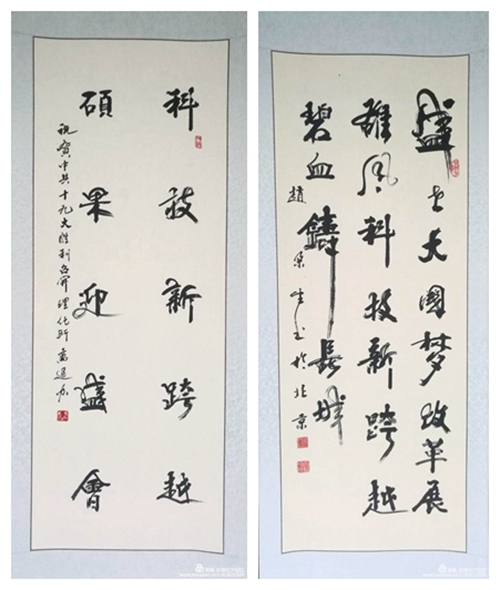 科技新跨越
碩果迎盛會
祝賀中共十九大胜利召开 理化所
盛世大國梦改革展
雄风科技新跨越
碧血鑄長城
趙
生书於北京